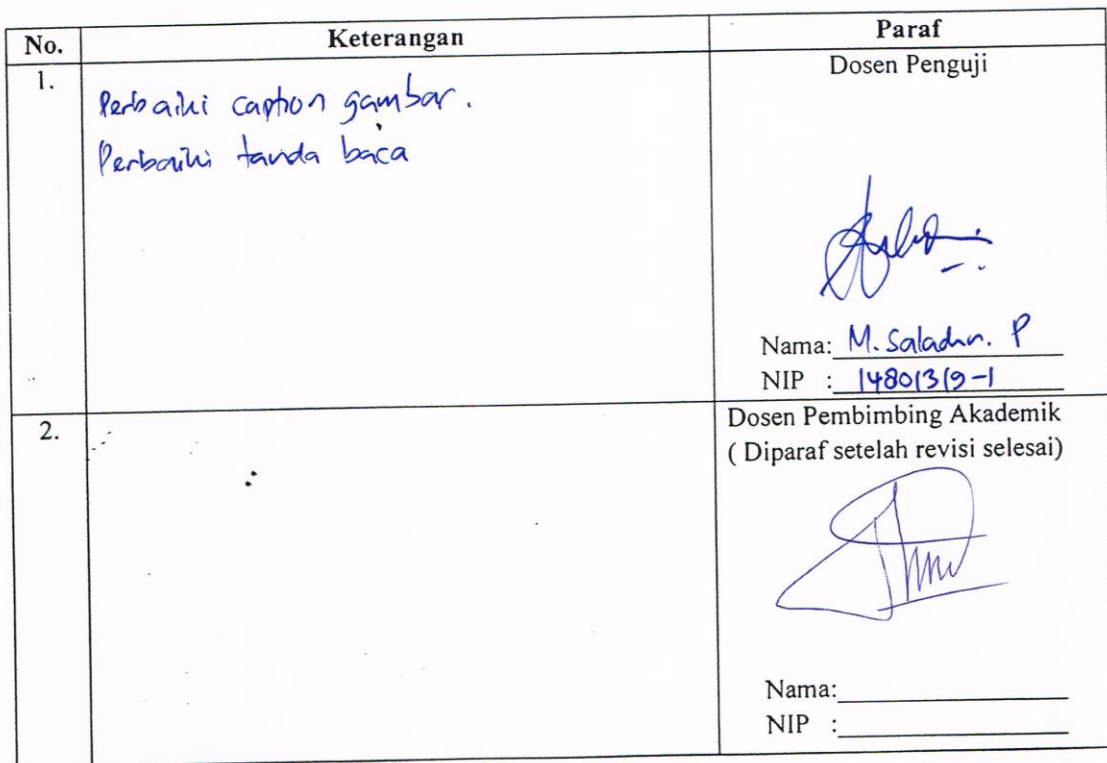 No. Keterangan Paraf
1. Dosen Penguji
Perbaiki caption gambar.
Perbaiki tanda baca
Nama: M. Saladin. P
NIP : 14801319-1
2. Dosen Pembimbing Akademik
( Diparaf setelah revisi selesai)
Nama:
NIP :